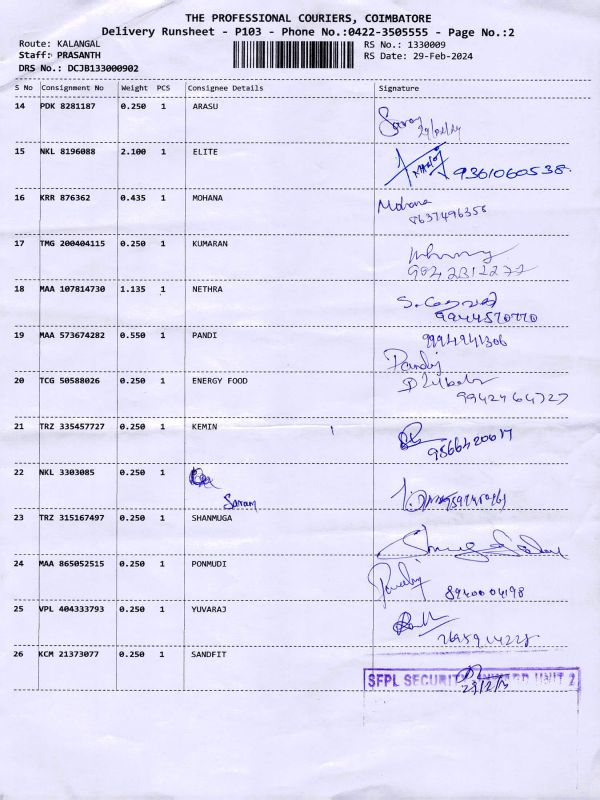 THE PROFESSIONAL COURIERS, COIMBATORE
Delivery Runsheet - P103 - Phone No.:0422-3505555 - Page No.:2
Route: KALANGAL RS No.: 1330009
Staff: PRASANTH RS Date: 29-Feb-2024
DRS No.: DCJB133000902
S No Consignment No Weight PCS Consignee Details Signature
14 PDK 8281187 0.250 1 ARASU
15 NKL 8196088 2.100 1 ELITE
9361060538
16 KRR 876362 0.435 1 MOHANA Mohana
8637496356
17 TMG 200404115 0.250 1 KUMARAN
9042312272
18 MAA 107814730 1.135 1 NETHRA
9944570770
19 MAA 573674282 0.550 1 PANDI 9994941306
Pandij
20 TCG 50588026 0.250 1 ENERGY FOOD
9942464727
21 TRZ 335457727 0.250 1 KEMIN
22 NKL 3303085 0.250 1
23 TRZ 315167497 0.250 1 SHANMUGA
24 MAA 865052515 0.250 1 PONMUDI
8940004198
25 VPL 404333793 0.250 1 YUVARAJ
26 KCM 21373077 0.250 1 SANDFIT
SFPL SECURITY INWARD UNIT 2